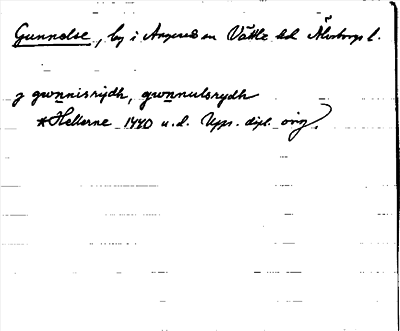 Gunnelse, by i Angered sn Vättle hd Älvsborgs l.
j gwnnisrydh, gwnnulsrydh
*Hellerne 1440 u.d. Upps. dipl. orig.